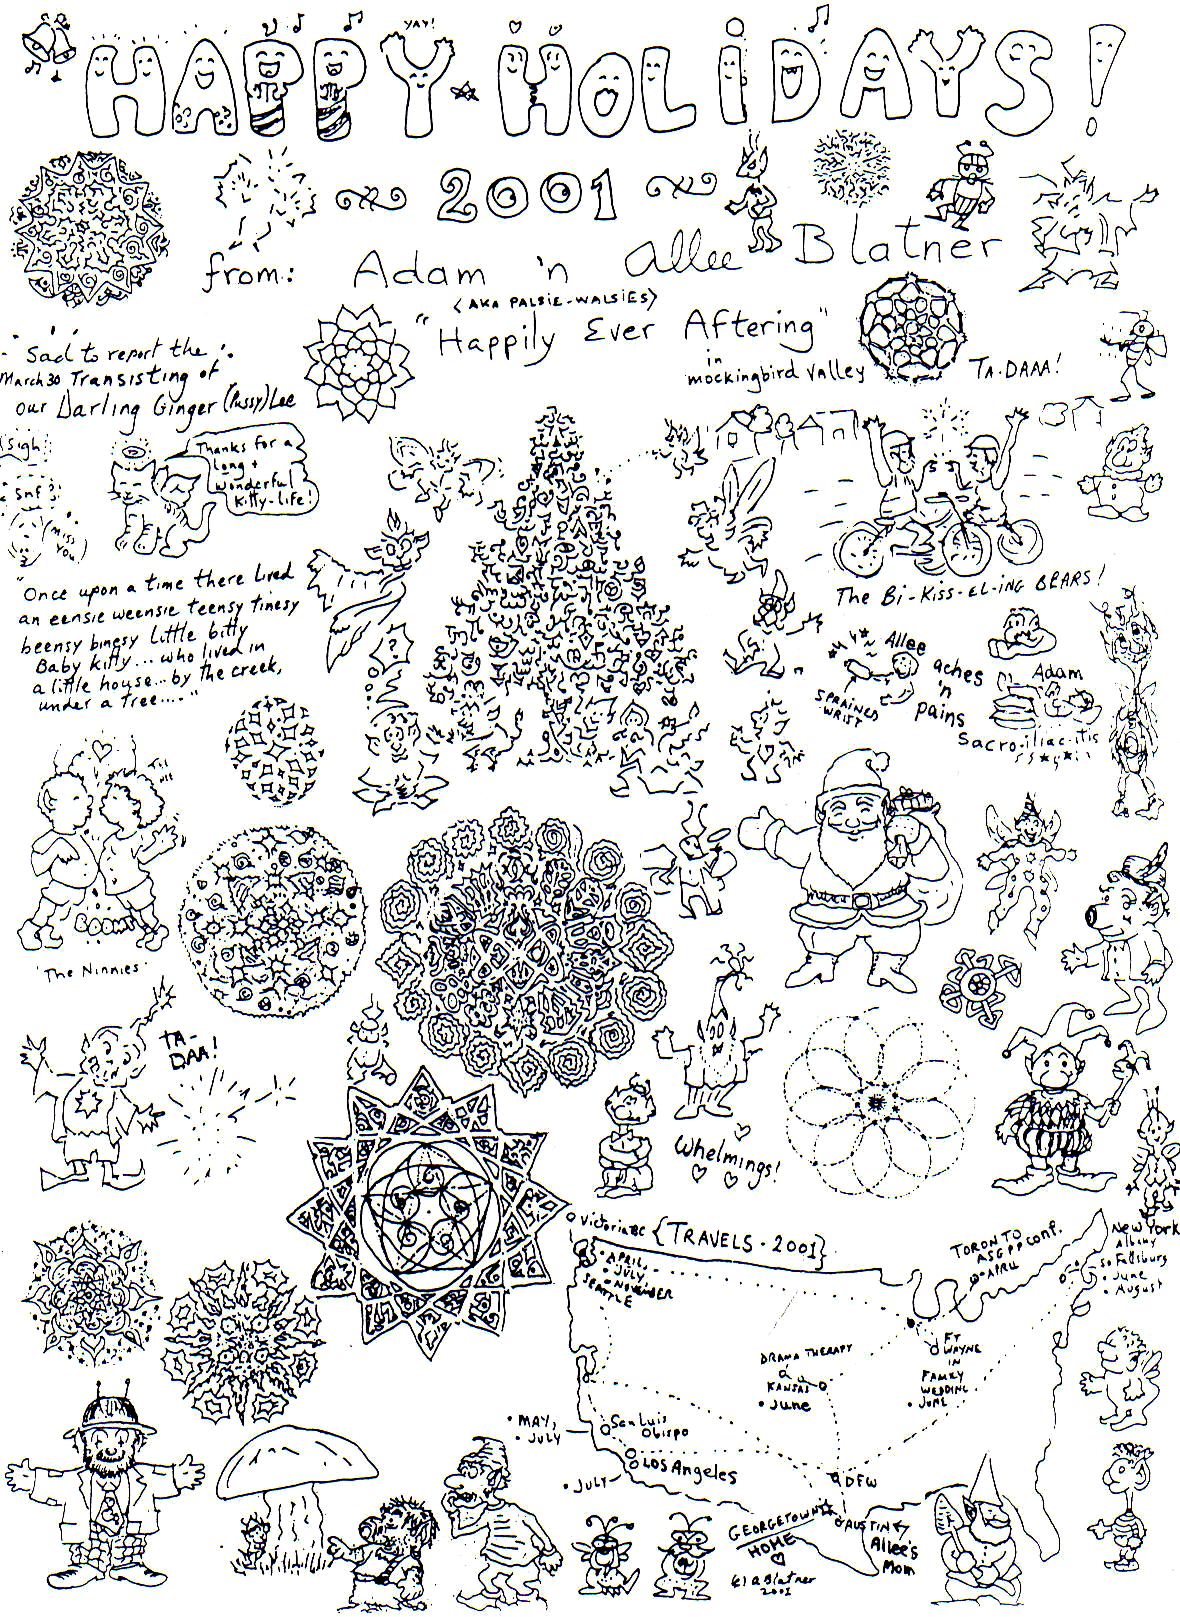 YAY!
HAPPY HOLIDAYS!
2001
from: Adam 'n Allee Blatner
<AKA PALSIE-WALSIES>
"Happily Ever Aftering"
in
mockingbird valley
TA-DAAA!
Sad to report the
March 30 Transisting of
our Darling Ginger (Pussy) Lee
(Sigh)
Snf
(miss
you)
Thanks for a
long +
wonderful
Kitty-life!
"Once upon a time there lived
an eensie weensie teensy tinesy
beensy binesy little bitty
Baby kitty... who lived in
a little house... by the creek,
under a tree...."
The Bi-Kiss-el-ing BEARS!
Allee
aches
'n
pains
SPRAINED
WRIST
Adam
Sacro-iliac-itis
?
BOOM!
'The Ninnies'
TA-
DAA!
Whelmings!
{TRAVELS - 2001}
Victoria BC
• APRIL
• JULY
- NOVEMBER
SEATTLE
TORONTO
ASGPP conf.
APRIL
New York
Albany
So Fallsburg
• June
• August
DRAMA THERAPY
KANSAS
• June
FT
WAYNE
IN
FAMILY
WEDDING
• JUNE
• MAY,
• JULY
San Luis
Obispo
• JULY
LOS Angeles
DFW
GEORGETOWN
HOME
AUSTIN
Allee's
Mom
(c) A Blatner
2001